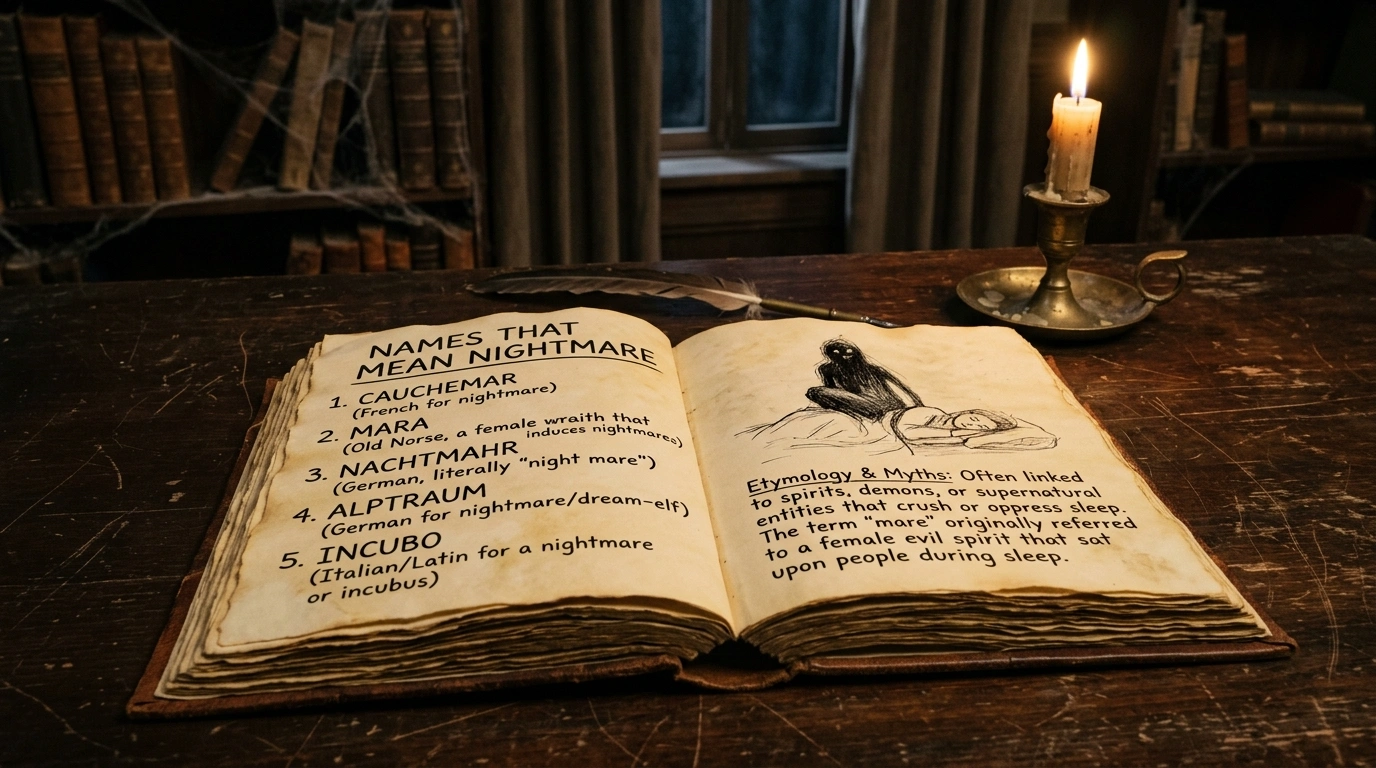 NAMES THAT
MEAN NIGHTMARE
1. CAUCHEMAR
(French for nightmare)
2. MARA
(Old Norse, a female wraith that
induces nightmares)
3. NACHTMAHR
(German, literally "night mare")
4. ALPTRAUM
(German for nightmare/dream-elf)
5. INCUBO
(Italian/Latin for a nightmare
or incubus)
Etymology & Myths: Often linked
to spirits, demons, or supernatural
entities that crush or oppress sleep.
The term "mare" originally referred
to a female evil spirit that sat
upon people during sleep.